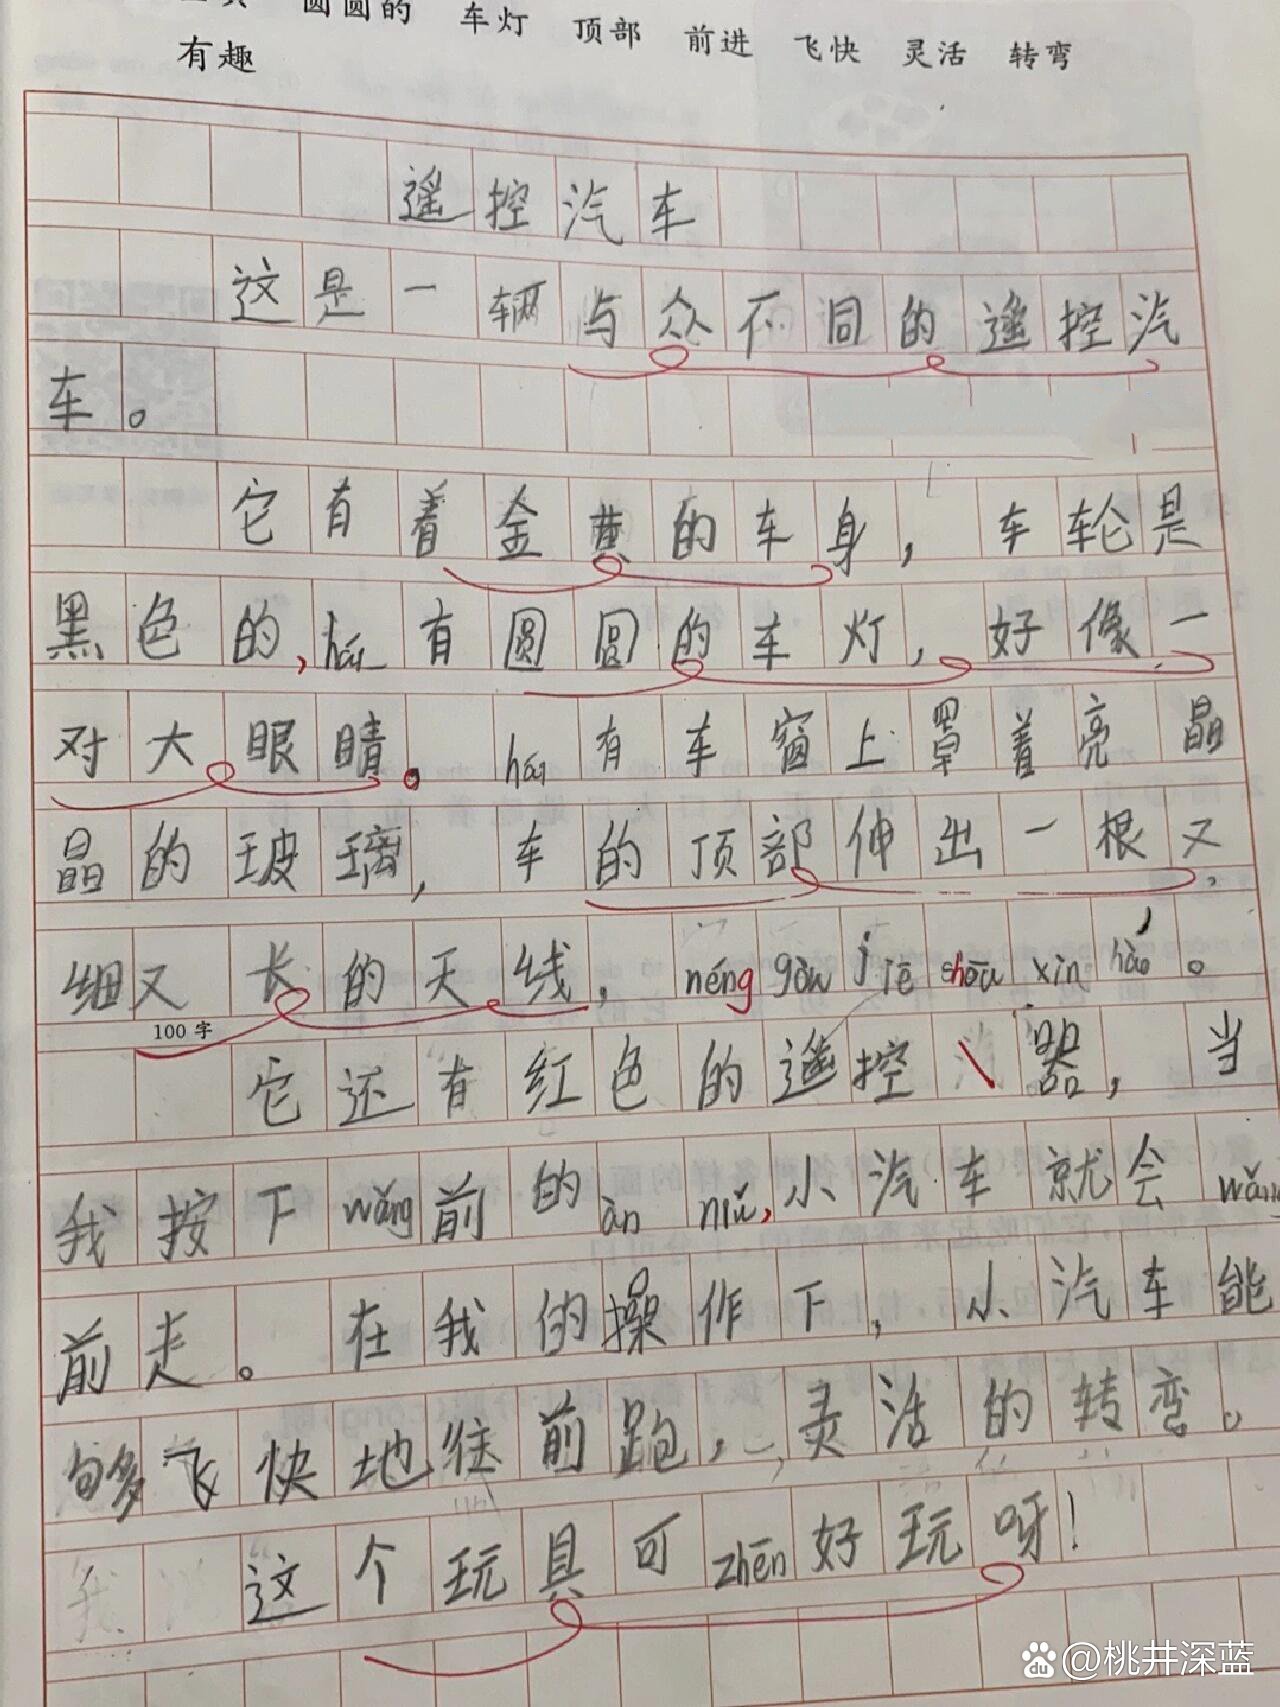 圆圆的 车灯 顶部 前进 飞快 灵活 转弯
有趣
遥控汽车
这是一辆与众不同的遥控汽
车。
它有着金黄的车身，车轮是
黑色的，hái有圆圆的车灯，好像一
对大眼睛。hái有车窗上罩着亮晶
晶的玻璃，车的顶部伸出一根又
细又长的天线，néng gòu jiē shōu xìn hào。
100字
它还有红色的遥控器，当
我按下wǎng前的àn niǔ，小汽车就会wǎng
前走。在我的操作下，小汽车能
够多飞快地往前跑，灵活的转弯。
这个玩具可zhēn好玩呀！
@桃井深蓝